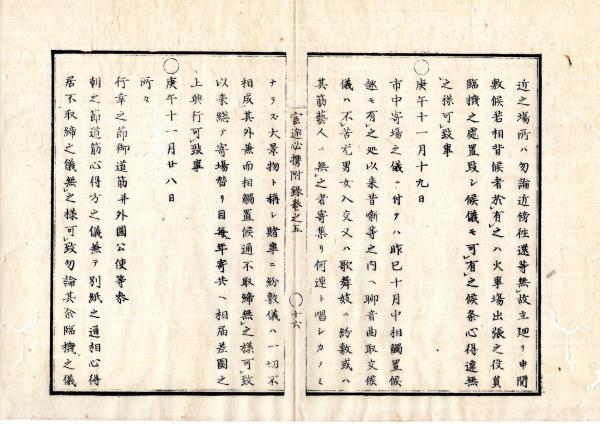 近之場所ハ勿論近傍往還等無故立廻リ申間
敷候若相背候者於有之ハ火車場出張之役員
臨機之処置致シ候儀モ可有之候条心得違無
之様可致事
○庚午十一月十九日
市中寄場之儀ニ付テハ昨巳十月中相觸置候
趣モ有之処以来昔噺等之内ヘ聊音曲取交候
儀ハ不苦尤男女入交又ハ歌舞妓ニ紛敷或ハ
其筋藝人ニ無之者寄集リ何連ト唱シカノミ
ナラス大景物ト稱シ賭事ニ紛敷儀ハ一切不
相成其外兼而相觸置候通不取締無之様可致
以来総テ寄場替リ目毎年寄共ヘ相届差圖之
上興行可致事
○庚午十一月廿八日
所々
行幸之節御道筋并外國公使等参
朝之節道筋心得方之儀兼テ別紙之通相心得
居不取締之儀無之様可致勿論其余臨機之儀
官途必携附録巻之五
○十六